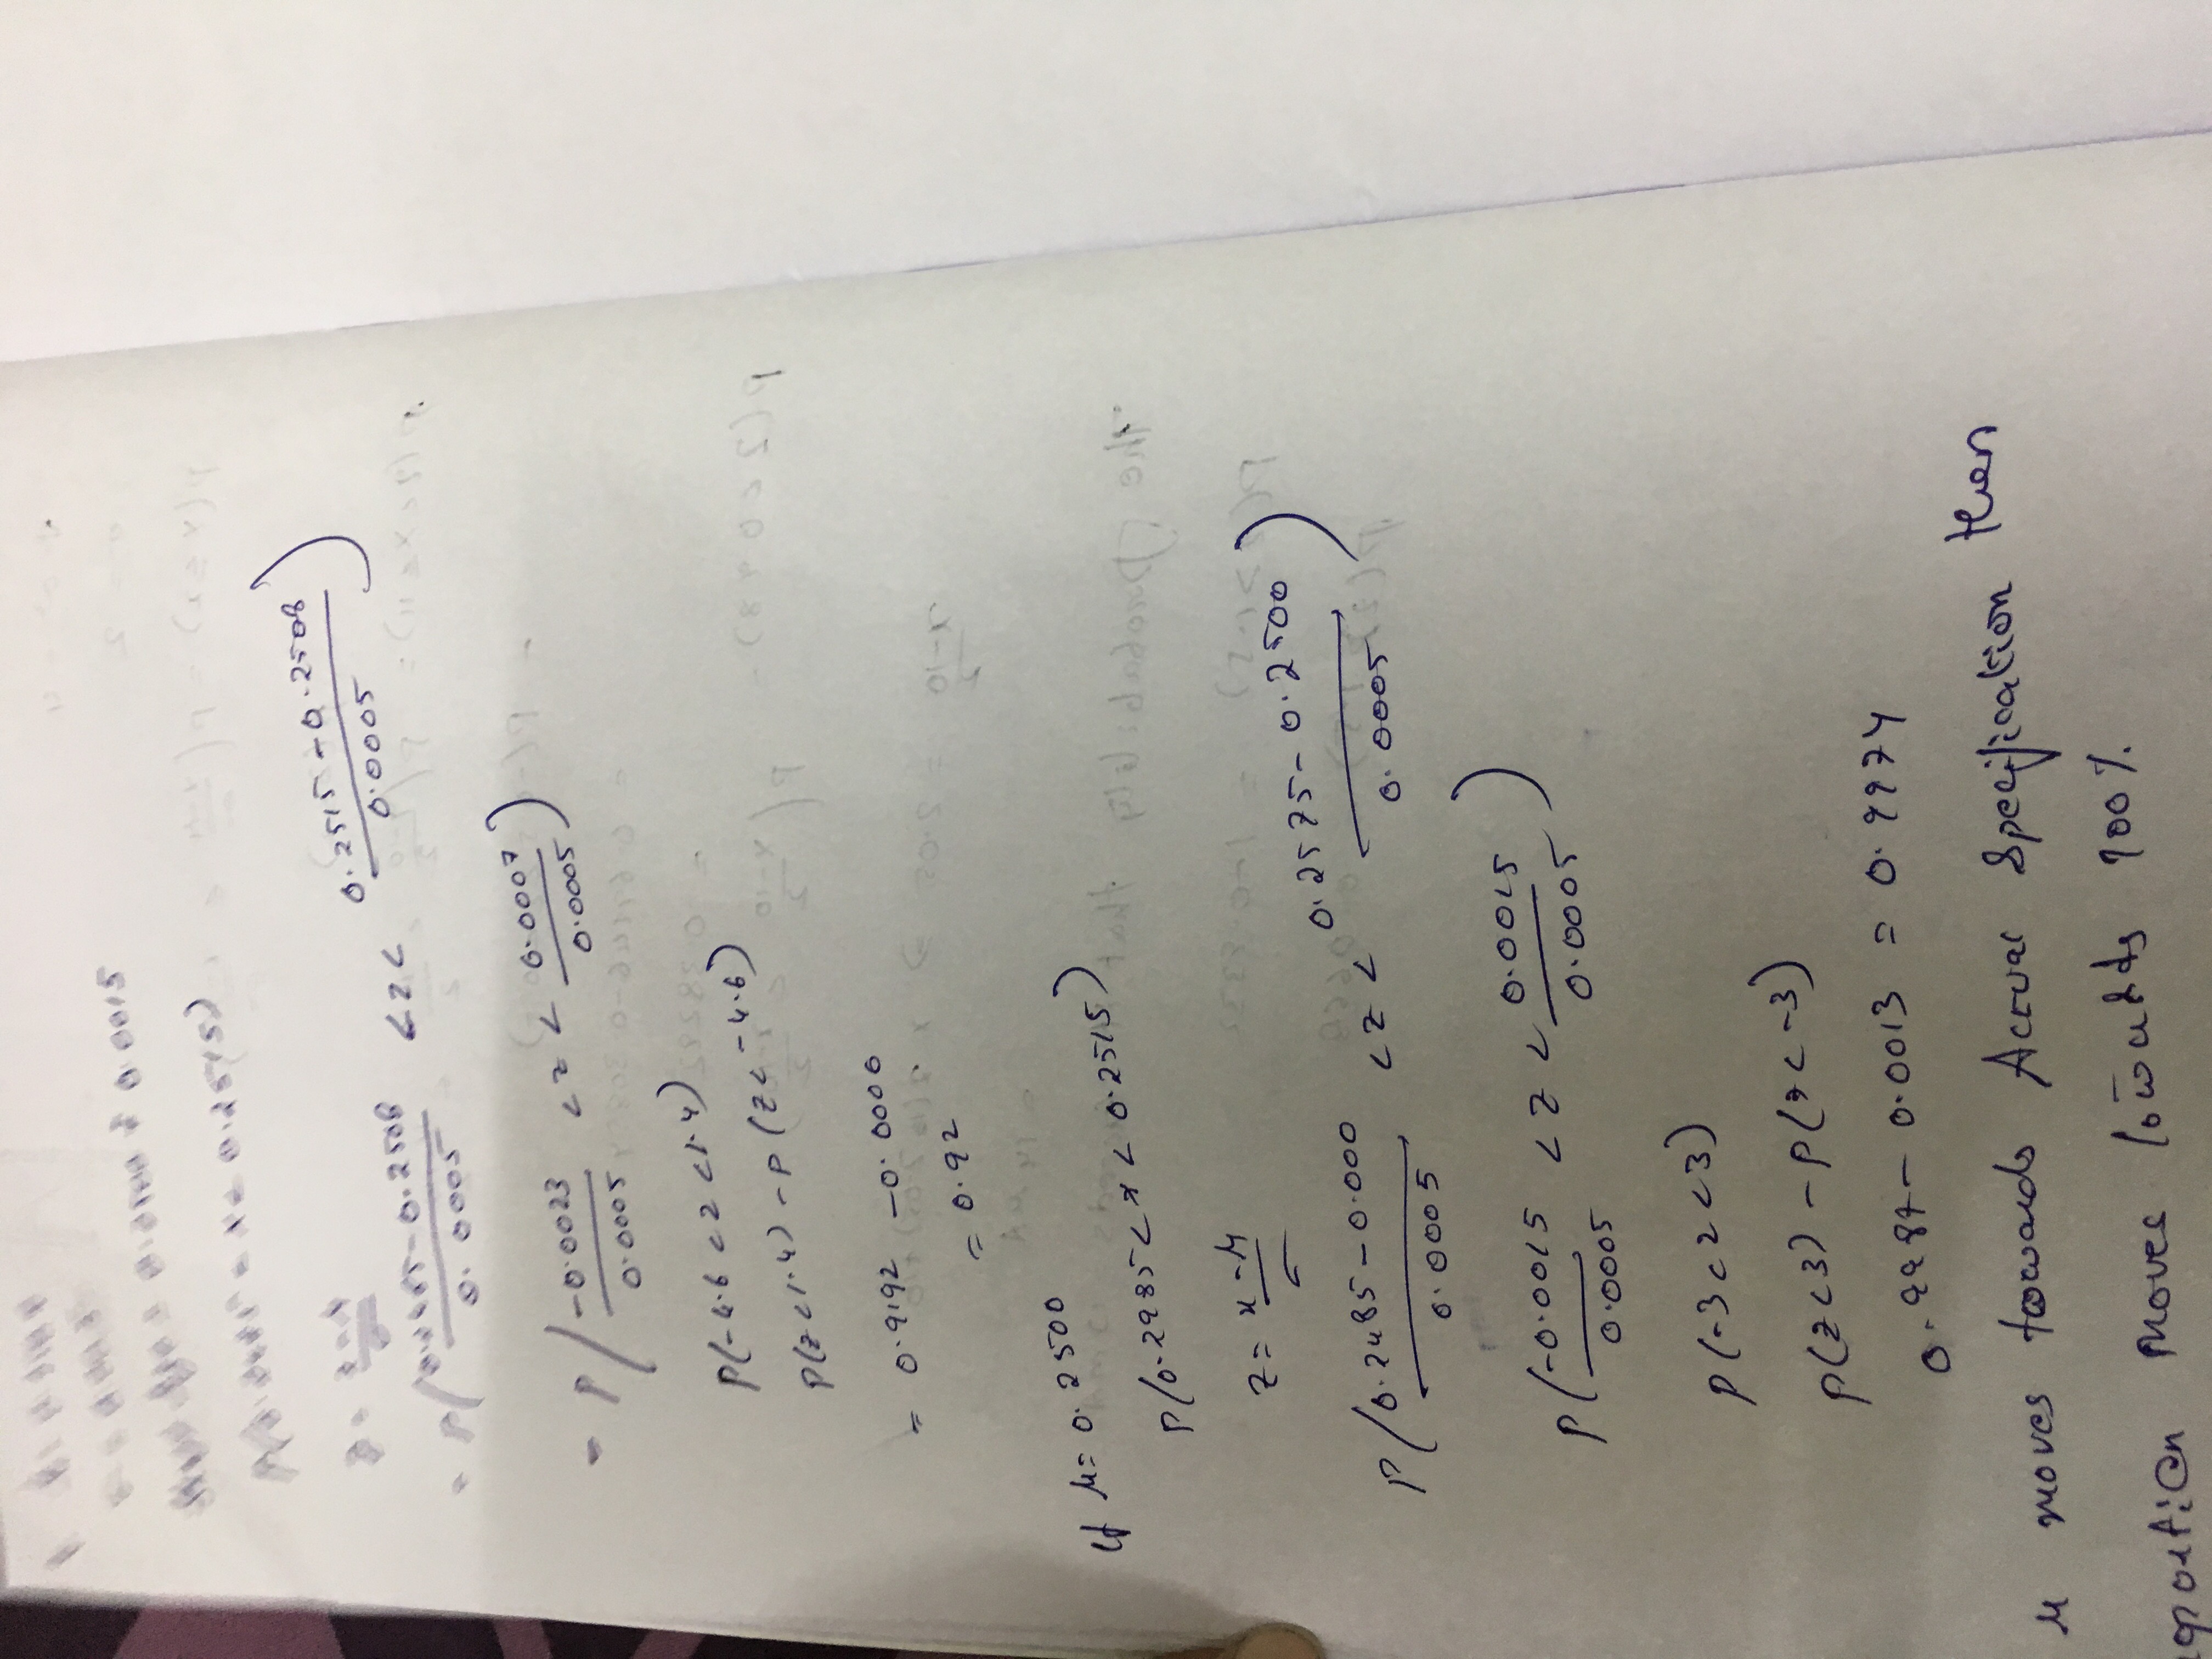 0.0015
0.2515)
= P(0.2485-0.2508/0.0005 <z< 0.2515-0.2508/0.0005)
= P(-0.0023/0.0005 <z< 0.0007/0.0005)
P(-4.6 <z<1.4)
P(z<1.4) - P(z<-4.6)
= 0.9192 -0.0000
= 0.92
If μ= 0.2500
P(0.2985<x<0.2515)
z= x-μ/σ
P(0.2485-0.000/0.0005 <z< 0.2575-0.2500/0.0005)
P(-0.0015/0.0005 <z< 0.0015/0.0005)
P(-3<z<3)
P(z<3) - P(z<-3)
0.9987- 0.0013 = 0.9974
μ moves towards Actual Specification then
moves towards 100%.